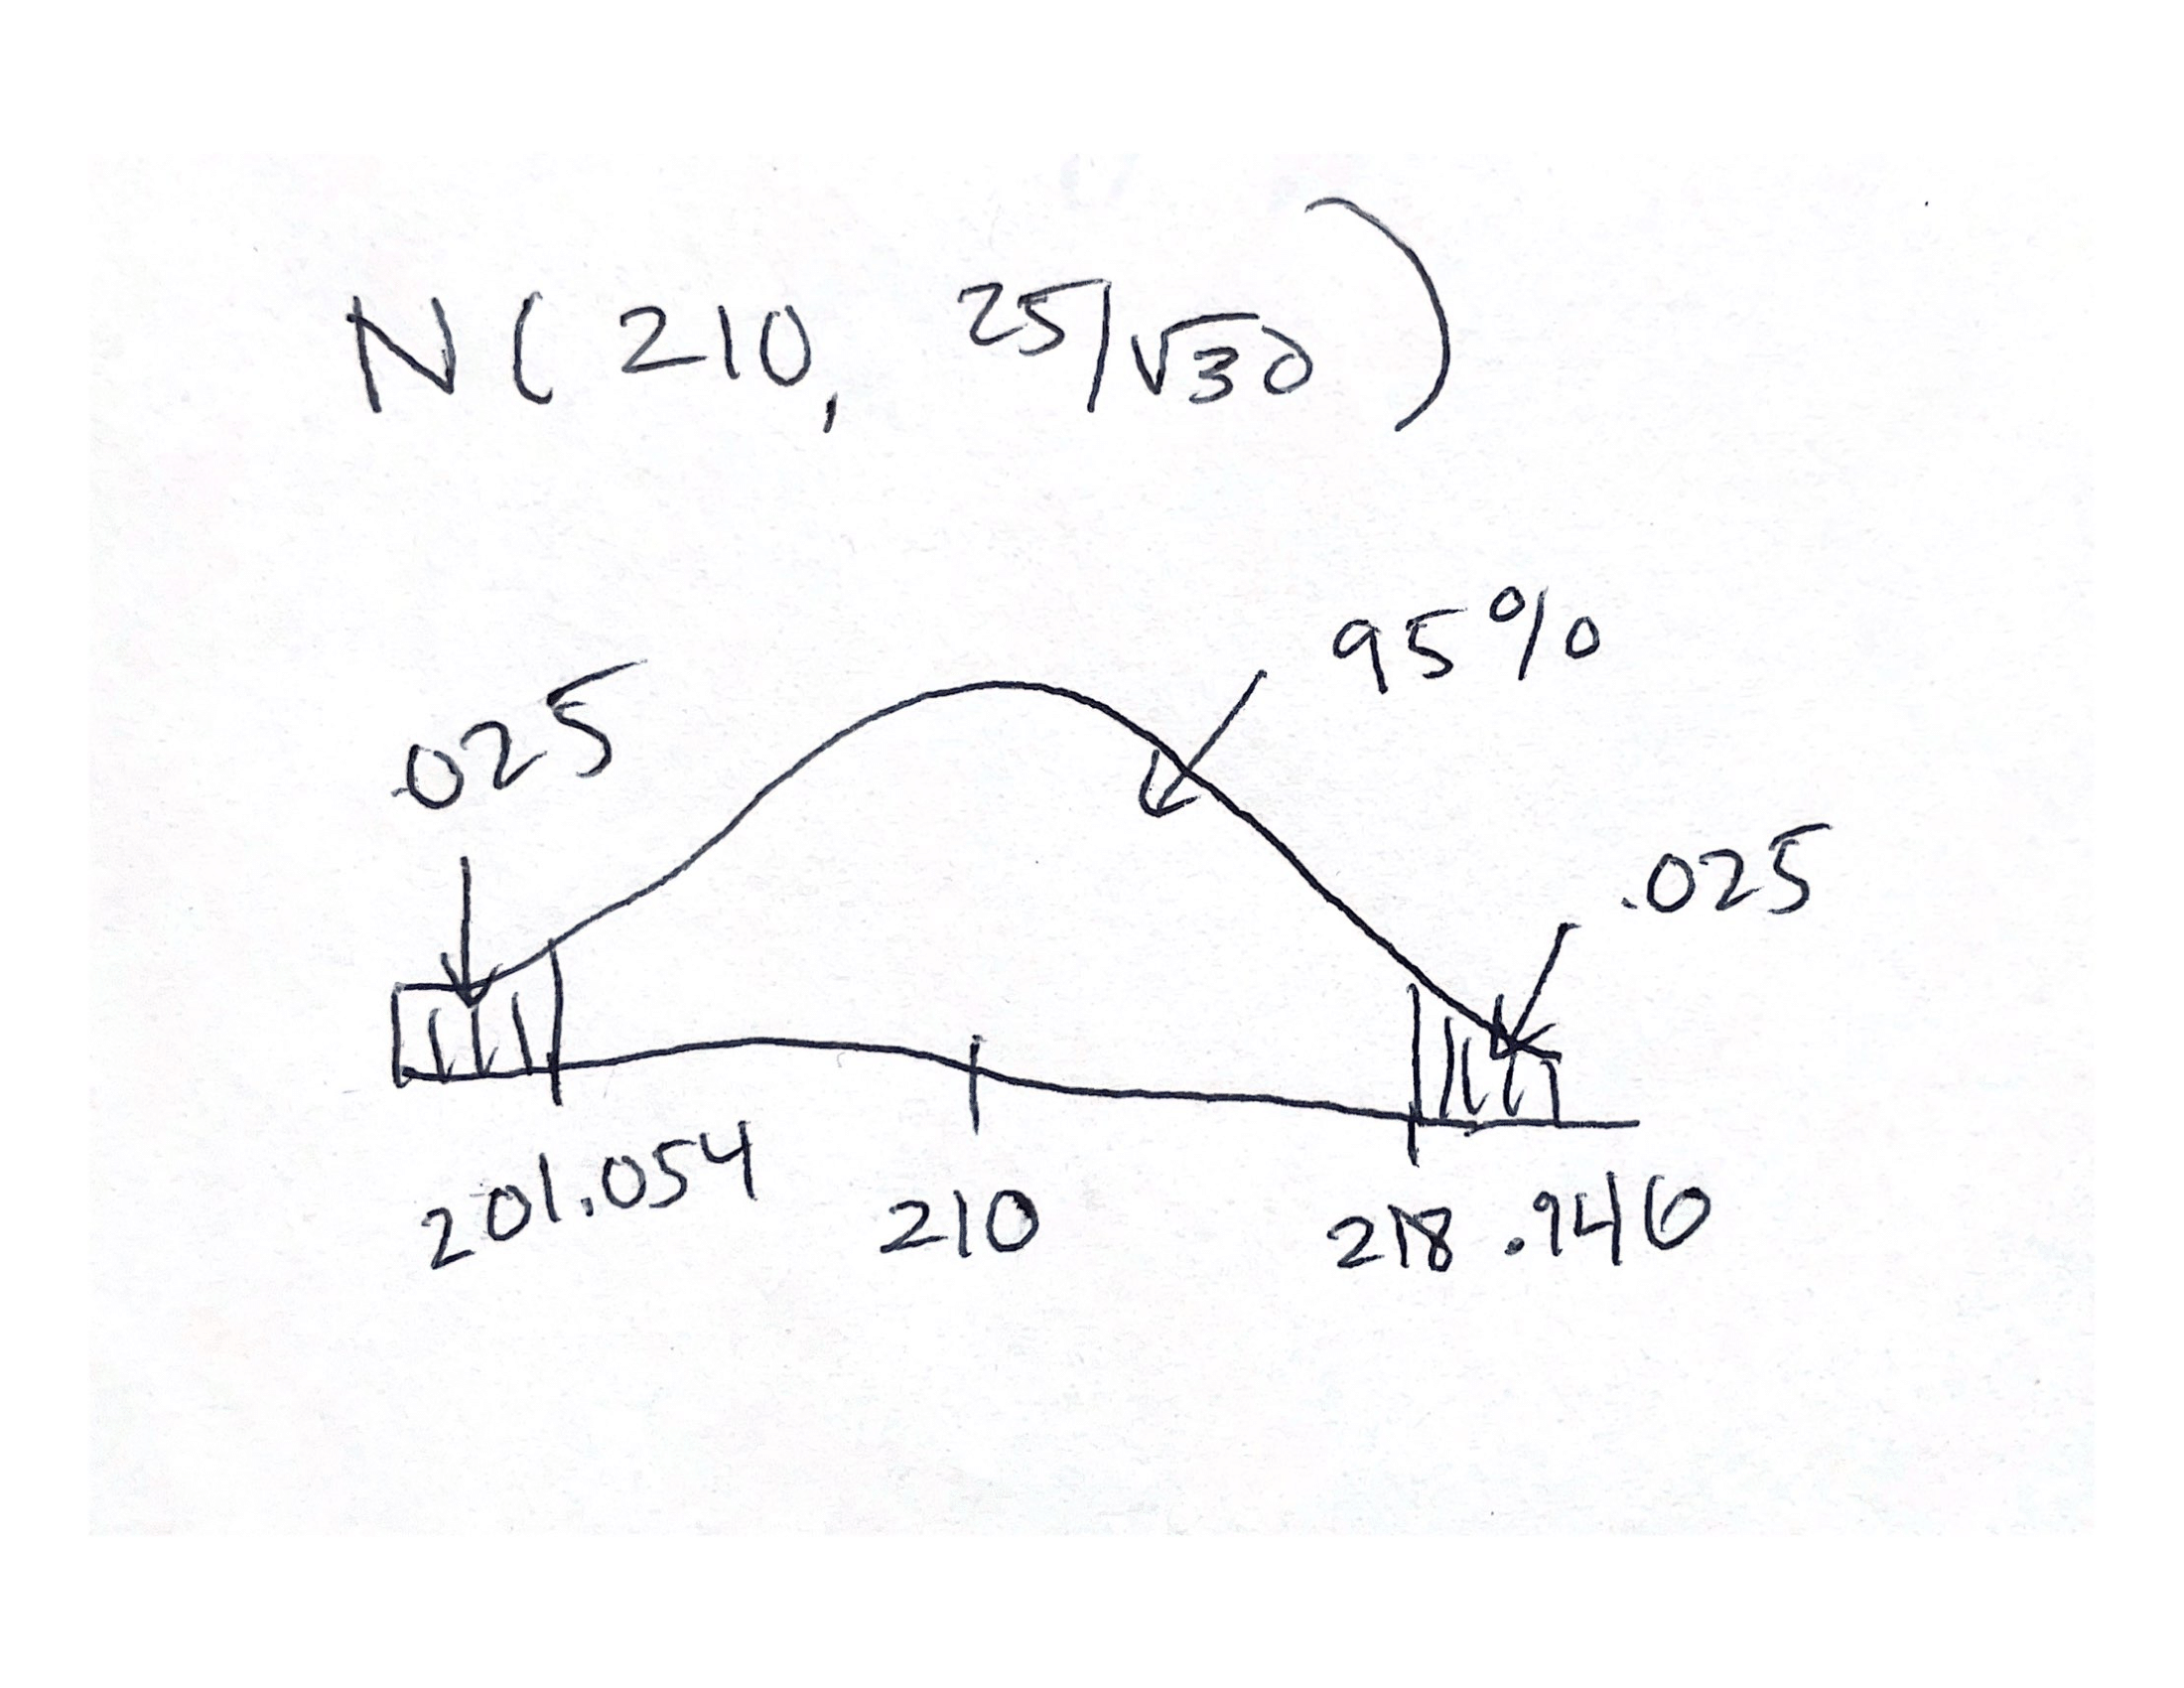 N(210, 25/√30)
95%
.025
.025
201.054
210
218.946